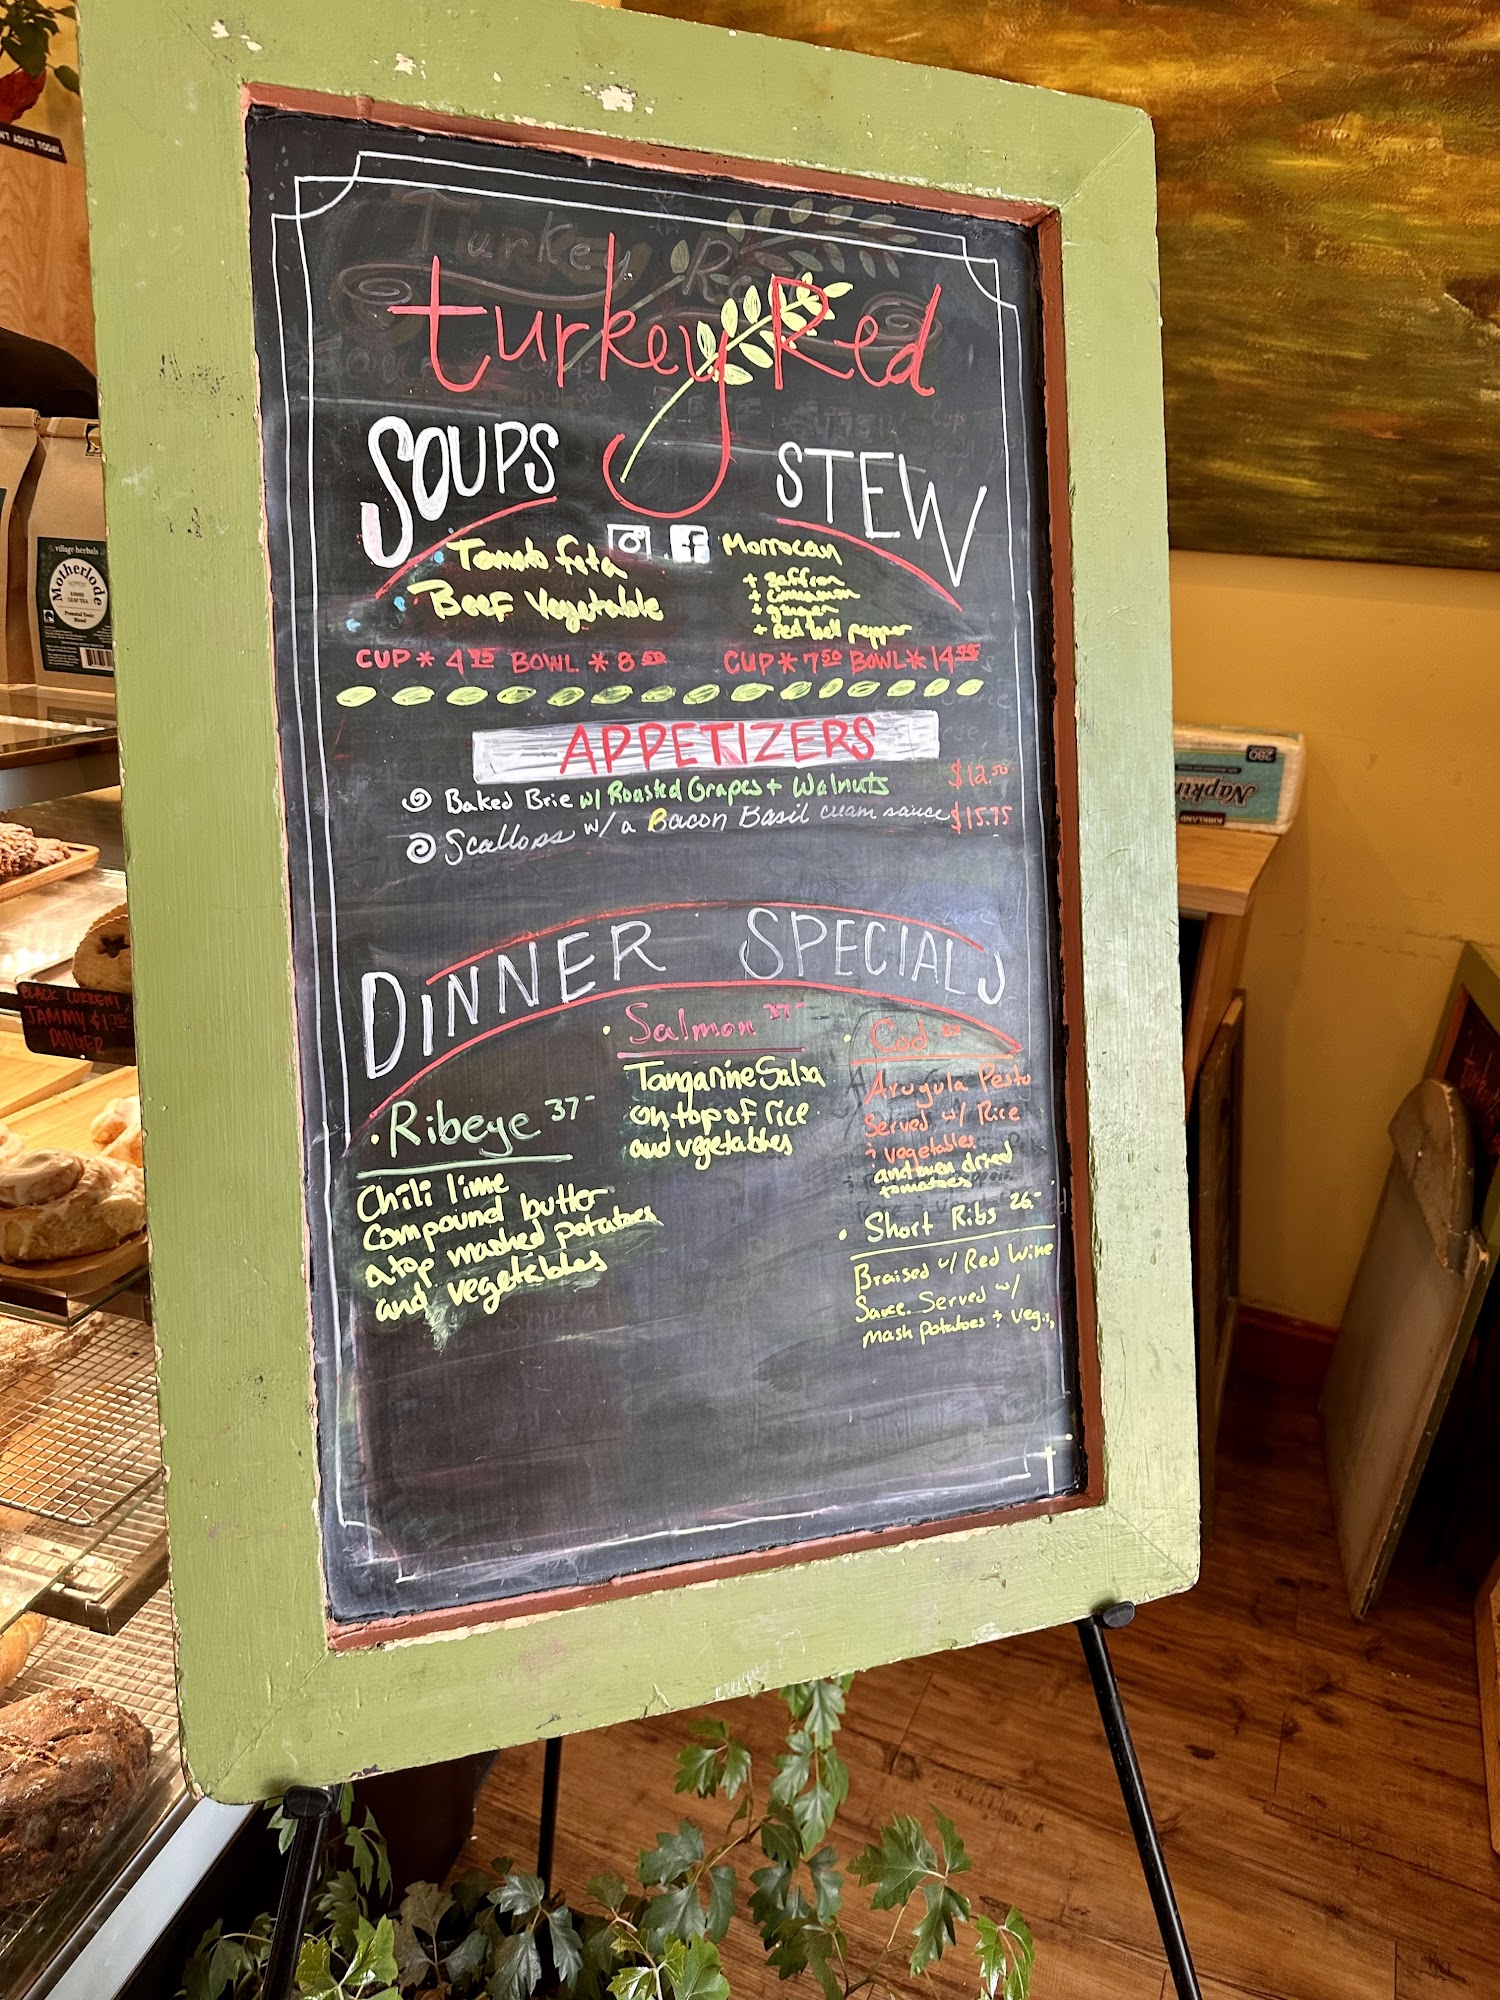 N'T ADULT TODAY.
turkey Red
SOUPS
STEW
Tomato feta
Beef Vegetable
CUP * 4 95 BOWL * 8 50
Morrocan
+ saffron
+ cinnamon
+ ginger
+ red bell pepper
CUP * 7 50 BOWL * 14 95
APPETIZERS
Baked Brie w/ Roasted Grapes + Walnuts $12.50
Scallops w/ a Bacon Basil cream sauce $15.75
DINNER SPECIALS
Ribeye 37-
Chili lime
compound butter
atop mashed potatoes
and vegetables
Salmon 37-
Tangarine Salsa
on top of rice
and vegetables
Cod
Arugula Pesto
Served w/ Rice
& vegetables
and oven dried
tomatoes
Short Ribs 26-
Braised w/ Red Wine
Sauce. Served w/
Mash potatoes & Veg.
village herbals
Motherlode
LOOSE
LEAF TEA
BLACK CURRENT
JAMMY $1 75
DODGER
280
Napkin
KIRKLAND